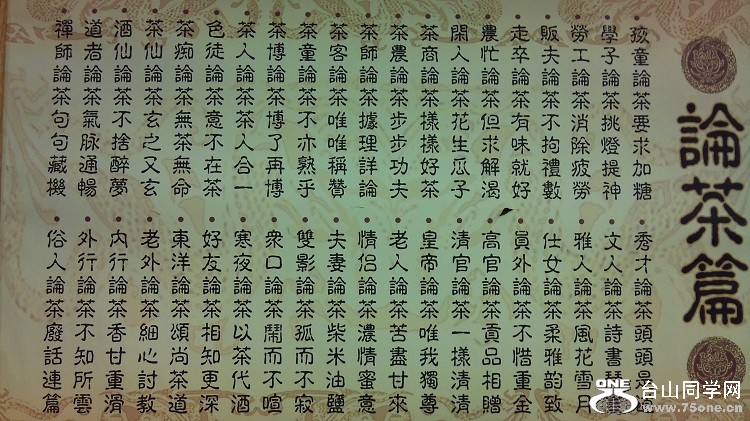 論茶篇
孩童論茶要求加糖
學子論茶挑燈提神
勞工論茶消除疲勞
販夫論茶不拘禮數
走卒論茶有味就好
農忙論茶但求解渴
閑人論茶花生瓜子
茶商論茶樣樣好茶
茶農論茶步步功夫
茶師論茶據理詳論
茶客論茶唯唯稱贊
茶童論茶不亦熟乎
茶博論茶博了再博
茶人論茶茶人合一
色徒論茶意不在茶
茶痴論茶無茶無命
茶仙論茶玄之又玄
酒仙論茶不捨醉夢
道者論茶氣脉通暢
禪師論茶句句藏機
秀才論茶頭頭是
文人論茶詩書
雅人論茶風花雪月
仕女論茶柔雅韵致
員外論茶不惜重金
高官論茶貢品相贈
清官論茶一樣清清
皇帝論茶唯我獨尊
老人論茶苦盡甘來
情侣論茶濃情蜜意
夫妻論茶柴米油鹽
雙影論茶孤而不寂
衆口論茶鬧而不喧
寒夜論茶以茶代酒
好友論茶相知更深
東洋論茶頌尚茶道
老外論茶細心討教
内行論茶香甘重滑
外行論茶不知所雲
俗人論茶廢話連篇
ONE 台山同学网
www.75one.com